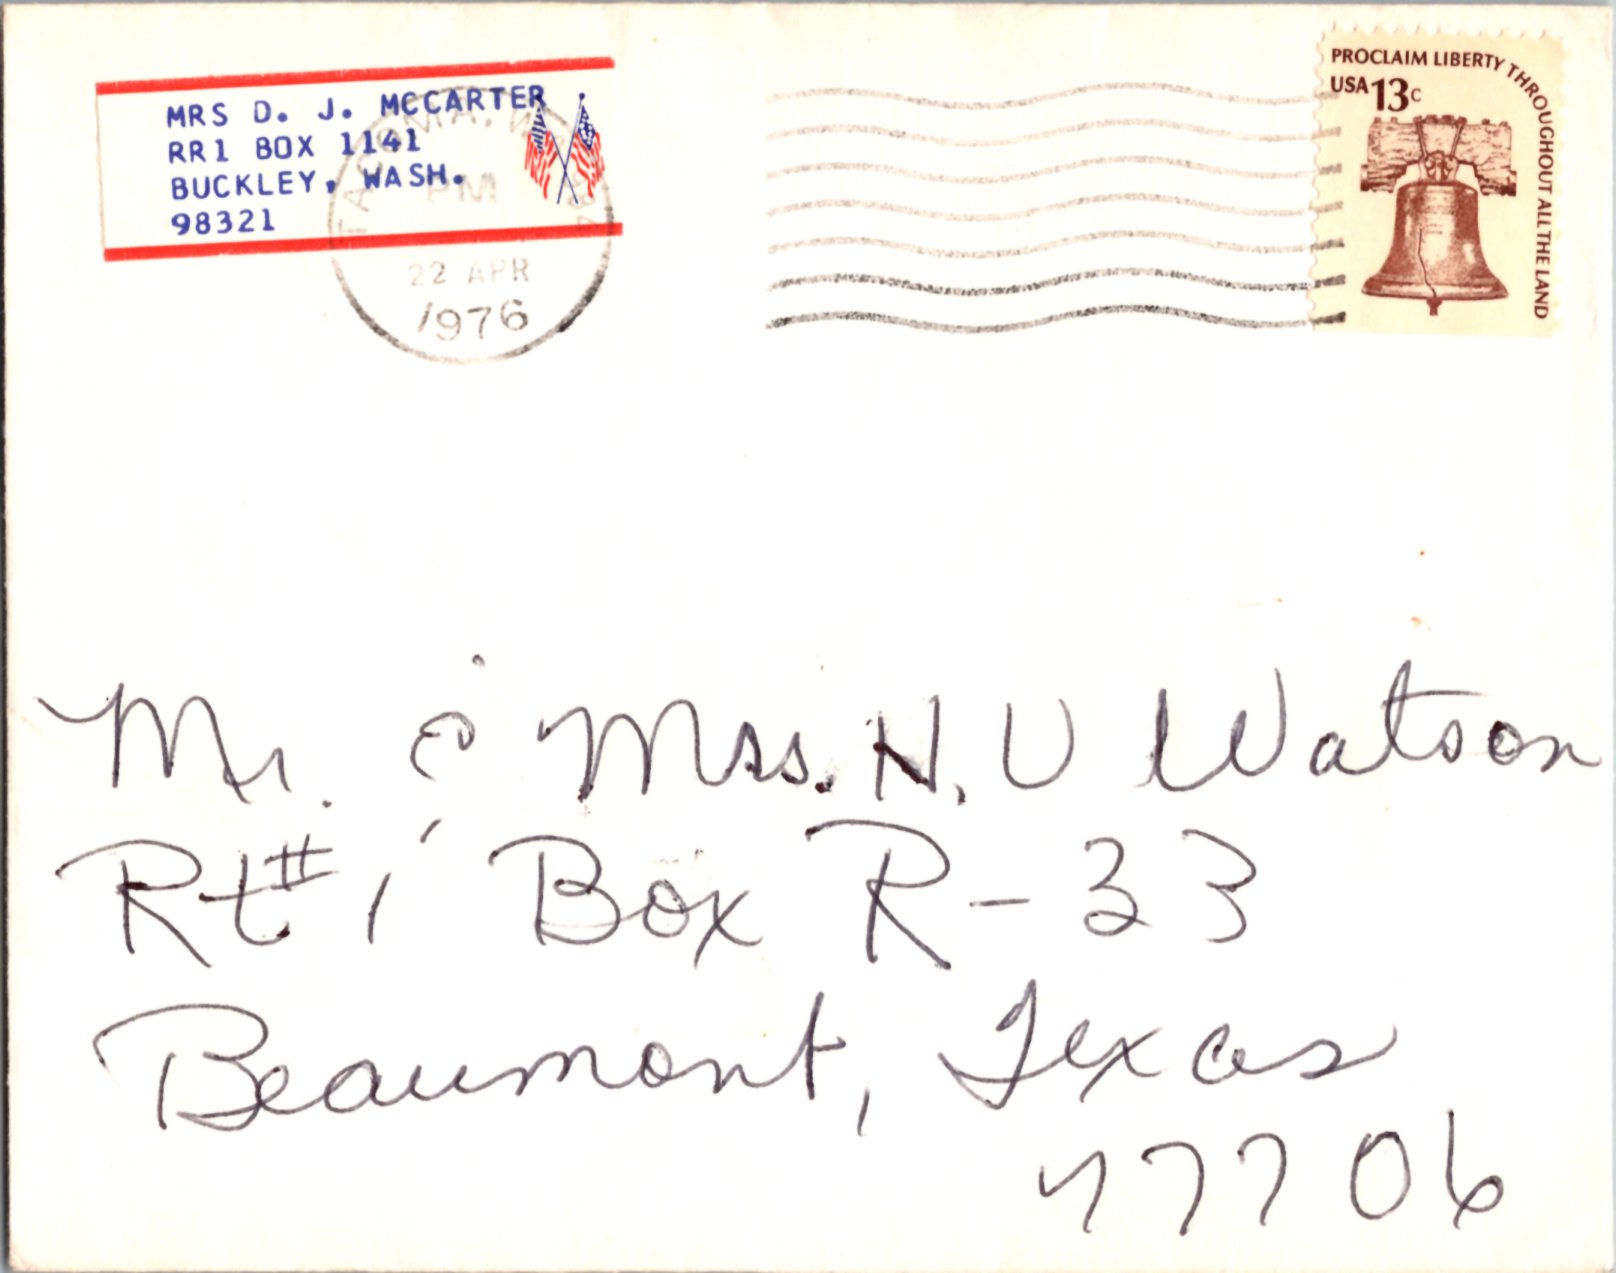 MRS D. J. MCCARTER
RR1 BOX 1141
BUCKLEY, WASH.
98321
TACOMA, WA
PM
22 APR
1976
PROCLAIM LIBERTY THROUGHOUT ALL THE LAND
USA 13c
Mr. & Mrs. H. V Watson
Rt # 1 Box R-33
Beaumont, Texas
77706